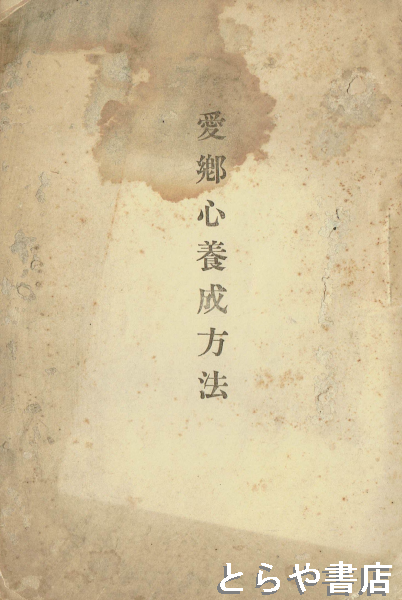 愛鄕心養成方法
とらや書店